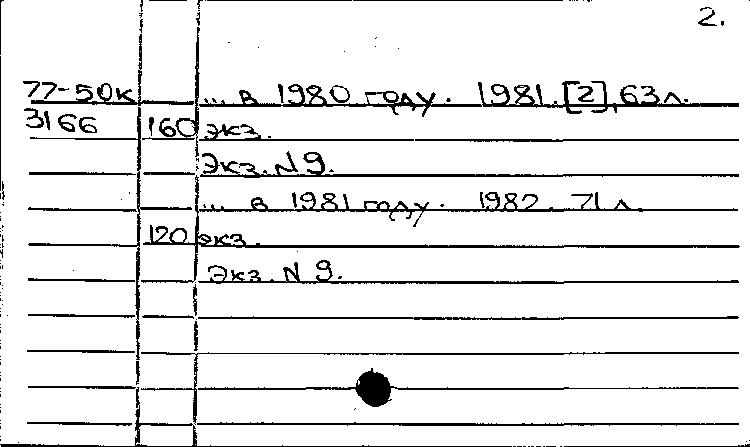 2.
77-50к ... в 1980 году. 1981. [2], 63 л.
3166 160 экз.
Экз. N 9.
... в 1981 году. 1982. 71 л.
120 экз.
Экз. N 9.